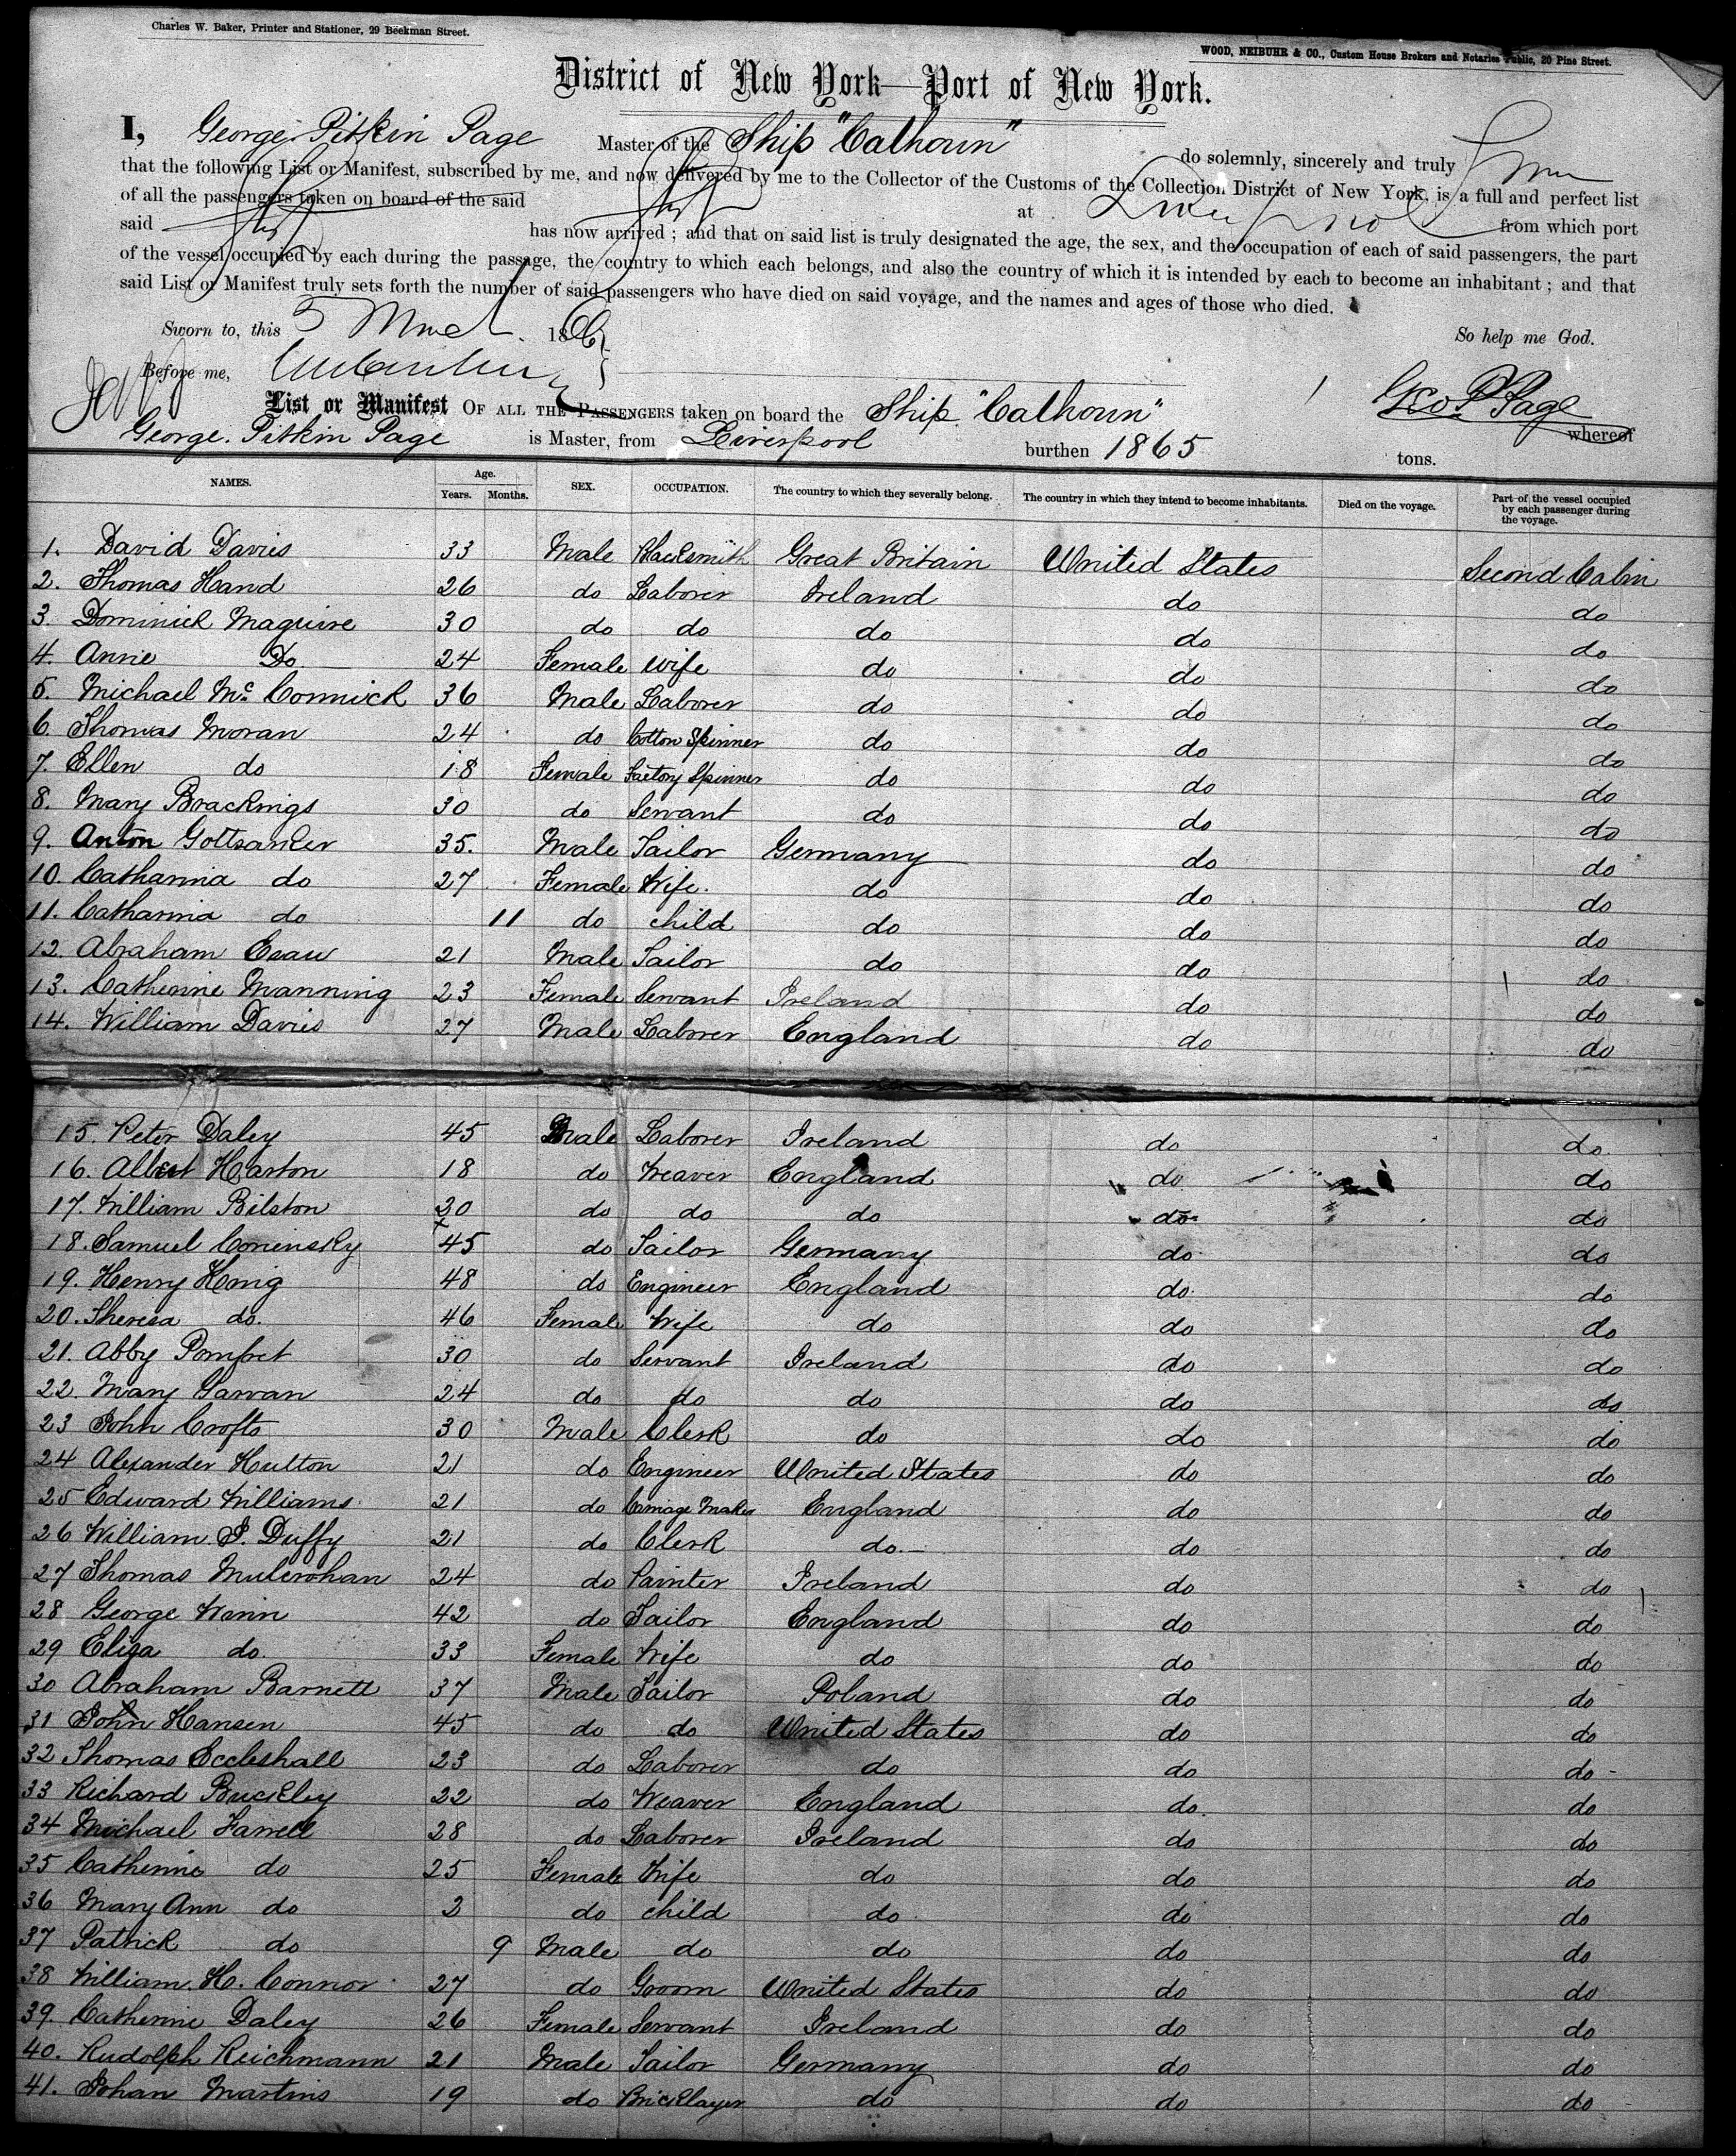 Charles W. Baker, Printer and Stationer, 29 Beekman Street.
WOOD, NEIBUHR & CO., Custom House Brokers and Notaries Public, 20 Pine Street.
District of New York—Port of New York.
I, George Pitkin Page Master of the Ship "Calhoun" do solemnly, sincerely and truly
that the following List or Manifest, subscribed by me, and now delivered by me to the Collector of the Customs of the Collection District of New York, is a full and perfect list
of all the passengers taken on board of the said at Liverpool from which port
said has now arrived; and that on said list is truly designated the age, the sex, and the occupation of each of said passengers, the part
of the vessel occupied by each during the passage, the country to which each belongs, and also the country of which it is intended by each to become an inhabitant; and that
said List or Manifest truly sets forth the number of said passengers who have died on said voyage, and the names and ages of those who died.
Sworn to, this 5 186 So help me God.
Before me, Geo P Page
List or Manifest OF ALL THE PASSENGERS taken on board the Ship "Calhoun" whereof
George. Pitkin Page is Master, from Liverpool burthen 1865 tons.
NAMES. Age. Years. Months. SEX. OCCUPATION. The country to which they severally belong. The country in which they intend to become inhabitants. Died on the voyage. Part of the vessel occupied by each passenger during the voyage.
1. David Davies 33 Male Blacksmith Great Britain United States Second Cabin
2. Thomas Hand 26 do Laborer Ireland do do
3. Dominick Maguire 30 do do do do do
4. Annie Do 24 Female Wife do do do
5. Michael Mc Cormick 36 Male Laborer do do do
6. Thomas Moran 24 do Cotton Spinner do do do
7. Ellen do 18 Female Factory Spinner do do do
8. Mary Brackings 30 do Servant do do do
9. Anton Gottsanker 35. Male Tailor Germany do do
10. Catharina do 27 Female Wife. do do do
11. Catharina do 11 do child do do do
12. Abraham Esau 21 Male Tailor do do do
13. Catherine Manning 23 Female Servant Ireland do do
14. William Davies 27 Male Laborer England do do
15. Peter Daley 45 Male Laborer Ireland do do.
16. Albert Harton 18 do Weaver England do do
17. William Bilston 30 do do do do do
18. Samuel Cominsky 45 do Tailor Germany do do
19. Henry Honig 48 do Engineer England do do
20. Theresa do. 46 Female Wife do do do
21. Abby Pomfret 30 do Servant Ireland do do
22. Mary Garvan 24 do do do do do
23 John Crofts 30 Male Clerk do do do
24 Alexander Hutton 21 do Engineer United States do do
25 Edward Williams 21 do Carriage Maker England do do
26 William P. Duffy 21 do Clerk do. do do
27 Thomas Mulcrohan 24 do Painter Ireland do do
28 George Winn 42 do Tailor England do do
29 Eliza do. 33 Female Wife do do do
30 Abraham Barnett 37 Male Tailor Poland do do
31 John Hansen 45 do do United States do do
32 Thomas Eccleshall 23 do Laborer do do do
33 Richard Buckley 22 do Weaver England do do
34 Michael Farrell 28 do Laborer Ireland do do
35 Catherine do 25 Female Wife do do do
36 Mary Ann do 2 do child do do do
37 Patrick do 9 Male do do do do
38 William. H. Connor 27 do Groom United States do do
39. Catherine Daley 26 Female Servant Ireland do do
40. Rudolph Reichmann 21 Male Tailor Germany do do
41. Johan Martins 19 do Bricklayer do do do